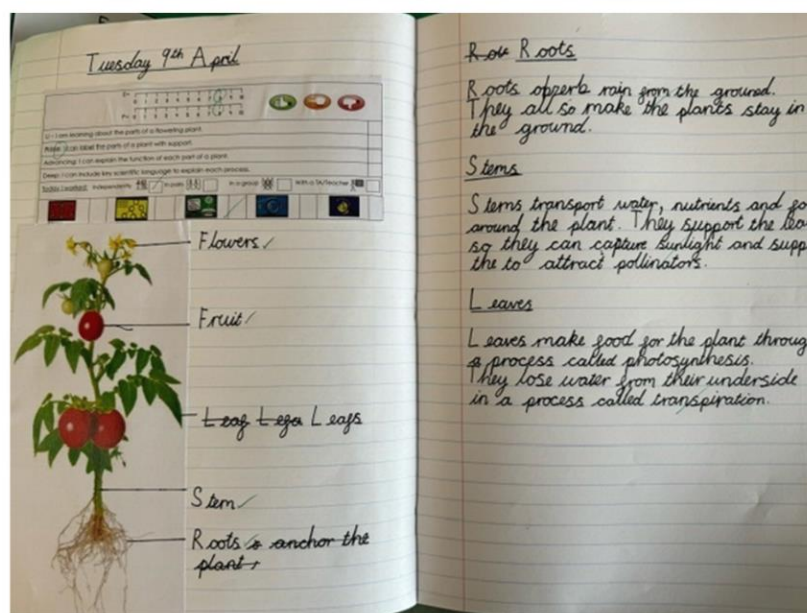 Tuesday 9th April
0 1 2 3 4 5 6 7 8 9 10
0 1 2 3 4 5 6 7 8 9 10
LI – I am learning about the parts of a flowering plant.
I can label the parts of a plant with support.
Advancing: I can explain the function of each part of a plant.
Deep: I can include key scientific language to explain each process.
Today I worked: Independently In pairs In a group With a TA/Teacher
Flowers
Fruit
Leaf Leafs
Stem
Roots anchor the
plant
Roots
Roots opperb rain from the ground.
They all so make the plants stay in
the ground.
Stems
Stems transport water, nutrients and
around the plant. They support the
so they can capture sunlight and
the to attract pollinators.
Leaves
Leaves make food for the plant
a process called photosynthesis.
They lose water from their underside
in a process called transpiration.